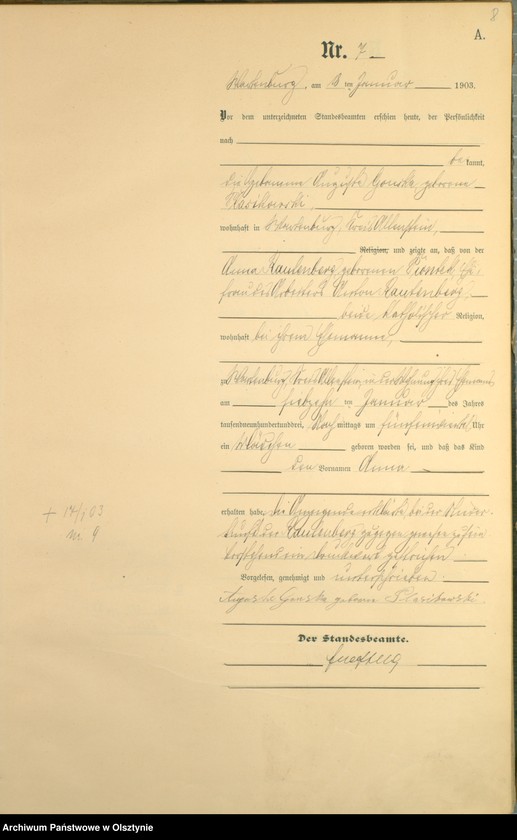 8
A.
Nr. 7
Wartenburg, am Januar 1903.
Vor dem unterzeichneten Standesbeamten erschien heute, der Persönlichkeit
nach
be kannt,
die Hebamme Auguste geborene
wohnhaft in Wartenburg, Kreis Allenstein,
Religion, und zeigte an, daß von der
Anna Lautenberg geborenen Ehe-
frau des Arbeiters Lautenberg,
beide katholischer Religion,
wohnhaft bei ihrem Ehemanne,
zu Wartenburg, Kreis Allenstein, in der Wohnung des Ehemanns,
am Januar des Jahres
tausendneunhundertunddrei, Nach mittags um Uhr
ein Mädchen geboren worden sei, und daß das Kind
den Vornamen Anna
erhalten habe. Die Anzeigende erklärte, bei der Nieder-
kunft der Lautenberg zugegen gewesen zu sein
Vorstehend ein Druckwort gestrichen
Vorgelesen, genehmigt und unterschrieben
geborene
Der Standesbeamte.
+ 03
Nr. 9
Archiwum Państwowe w Olsztynie